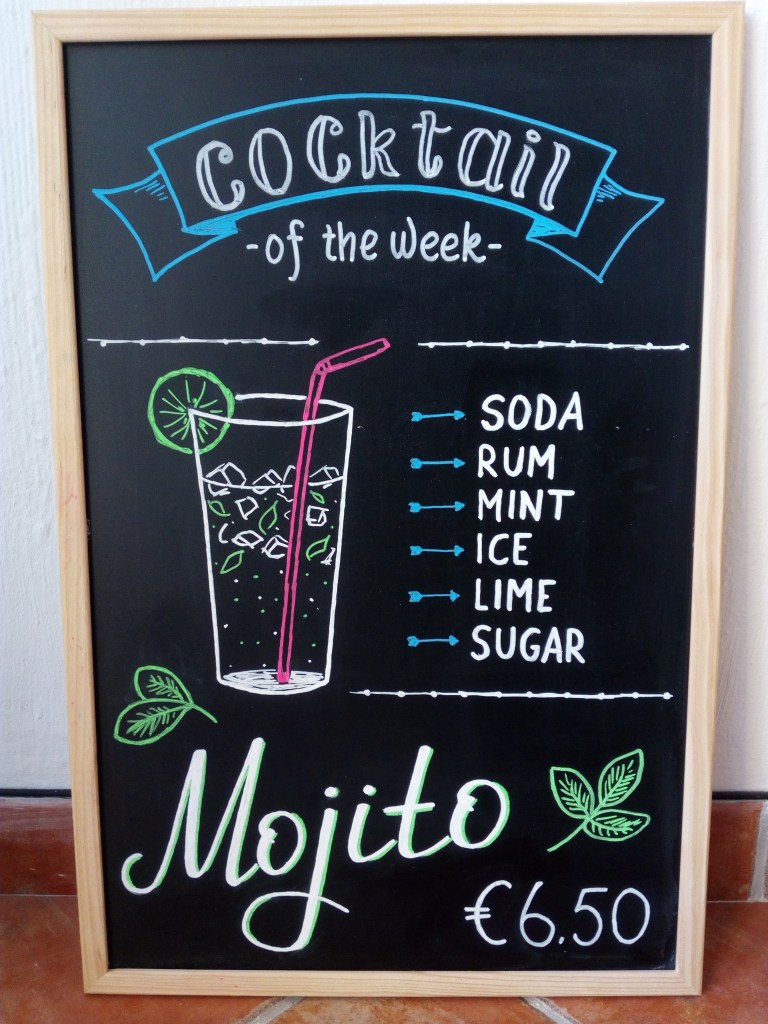 Cocktail
-of the week-
SODA
RUM
MINT
ICE
LIME
SUGAR
Mojito
€6.50